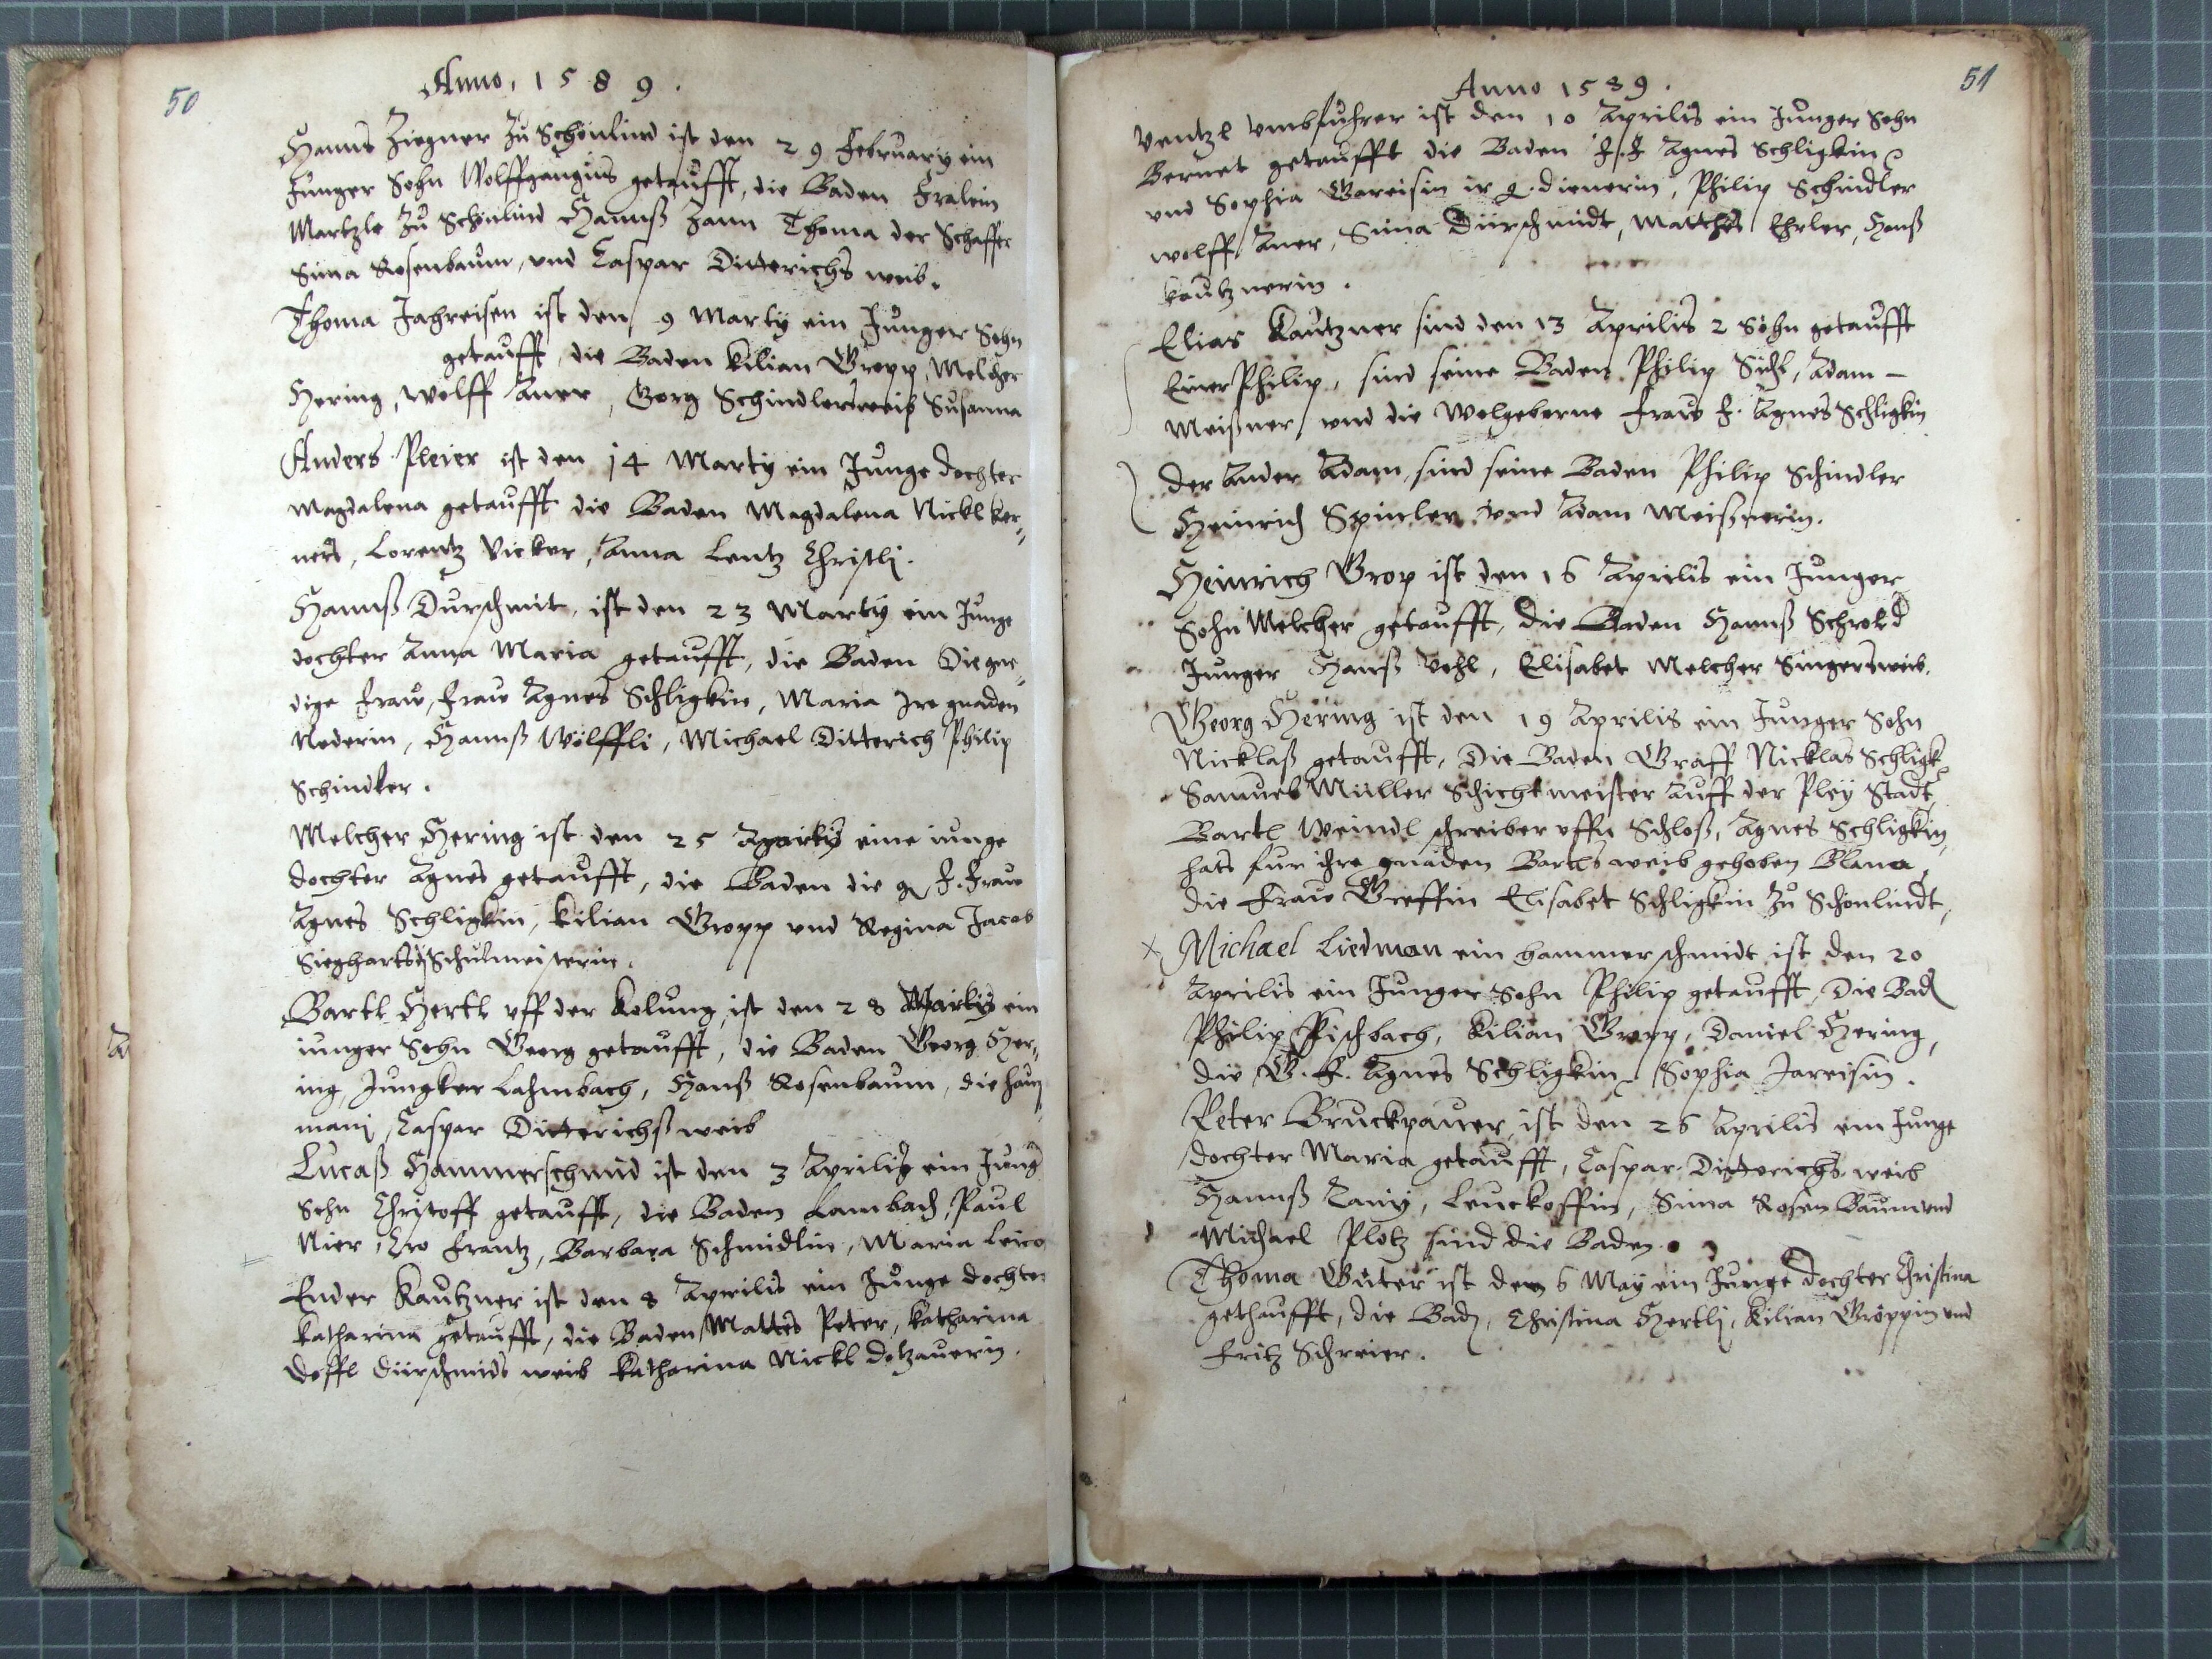 50
Anno, 1589.
Hanns Ziegner zu Schönlind ist den 29 February ein
Junger Sohn Wolffgangus getaufft, die Baden Fralein
Martzle zu Schönlind Hannß Zann Thoma der Schaffer
Sima Rosenbaum, und Caspar Ditterichs weib.
Thoma Jahreisen ist den 9 Marty ein Junger Sohn
getaufft, die Baden Kilian Gropp, Melcher
Hering, Wolff Aner, Georg Schindlers weib Susanna
Anders Pleier ist den 14 Marty ein Junge dochter
Magdalena getaufft die Baden Magdalena Nickl Ker-
ners, Lorentz Vicker, Anna Lentz Christli.
Hannß Durschmit, ist den 23 Marty ein Junge
dochter Anna Maria getaufft, die Baden Die gne-
dige Fraw, Fraw Agnes Schligkin, Maria Ire gnaden
Nederin, Hannß Wölffli, Michael Ditterich Philip
Schindler.
Melcher Hering ist den 25 eine iunge
dochter Agnes getaufft, die Baden die g. F. Fraw
Agnes Schligkin, Kilian Gropp und Regina Jacob
Sieghartsdj Schulmeisterin.
Bartl Hertl uff der Kolung, ist den 28 Martis ein
iunger Sohn Georg getaufft, die Baden Georg Her-
ing, Jungker Lahmbach, Hanß Rosenbaum, die Hau
manj, Caspar Ditterichß weib
Lucaß Hammerschmid ist den 3 Aprilis ein Jung
Sohn Christoff getaufft, die Baden Lambach, Paul
Nier, Frantz, Barbara Schmidlin, Maria
Ender Kautzner ist den 8 Aprilis ein Junge dochter
Katharina getaufft, die Baden Mattes Peter, Katharina
Doffl Dürschmids weib Katharina Nickl Dotzauerin.
51
Anno 1589.
Ventzl Umbfuhrer ist den 10 Aprilis ein Junger Sohn
Bernet getaufft die Baden F. F Agnes Schligkin
und Sophia Gareisin ir g. dienerin, Philip Schindler
Wolff Aner, Sima Dürschmidt, Matthes Ehrler, Hanß
Kautznerin.
Elias Kautzner sind den 13 Aprilis 2 Söhn getaufft
Einer Philip, sind seine Baden Philip Sichl, Adam
Meißner, und die Wolgeborne Fraw F. Agnes Schligkin
der Ander Adam, sind seine Baden Philip Schindler
Heinrich Spinler und Adam Meißnerin.
Heinrich Grop ist den 16 Aprilis ein Junger
Sohn Melcher getaufft, die Baden Hannß Schrokd
Junger Hanß Vohl, Elisabet Melcher Singers weib.
Georg Hering ist den 19 Aprilis ein Junger Sohn
Nicklaß getaufft, Die Baden Graff Nicklas Schligk
Samuel Müller Schichtmeister Auff der Pley Stadt
Bartl Weindl schreiber uffn Schloß, Agnes Schligkin,
hats fur ihre gnaden Bartls weib gehoben
die Fraw Greffin Elisabet Schligkin zu Schönlindt,
Michael Liedman ein hammerschmidt ist den 20
Aprilis ein Junger Sohn Philip getaufft, Die Bad
Philip Fischbach, Kilian Gropp, Daniel Hering,
die G. F. Agnes Schligkin, Sophia Jareisin.
Peter Bruckpauer, ist den 26 Aprilis ein Junge
dochter Maria getaufft, Caspar Ditterichs weib
Hannß Leuckoffin, Sima Rosen Baum und
Michael Plötz sind die Baden.
Thoma Güter ist den 6 May ein Junge dochter Christina
gethaufft, die Bad, Christina Hertlj, Kilian Gröppin und
Fritz Schreier.